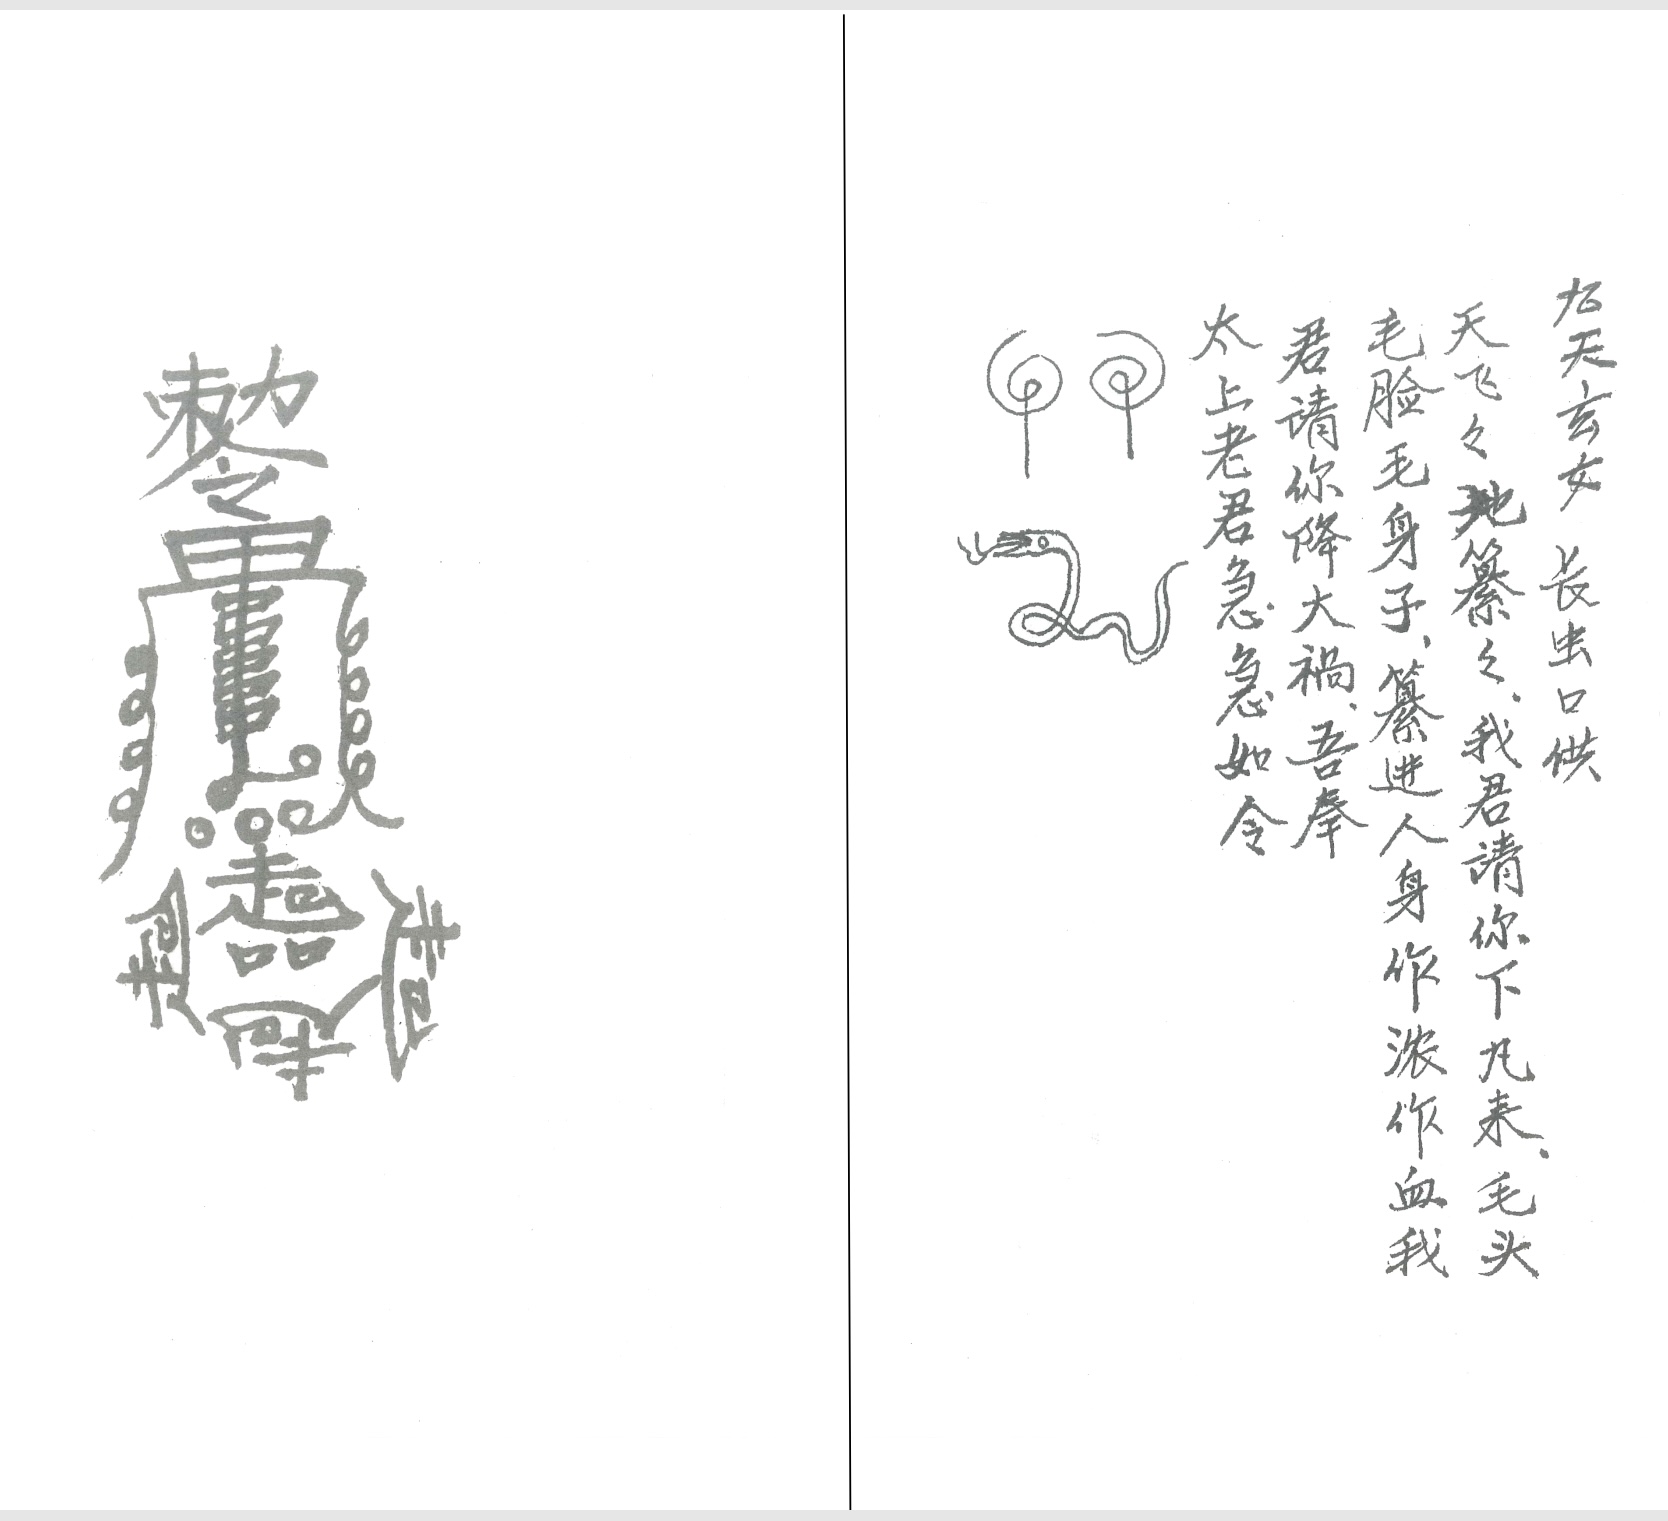 九天玄女 长虫口供
天飞々地纂々、我君請你下凡来、毛头
毛脸毛身子、纂进人身作浓作血我
君請你降大禍、吾奉
太上老君急急如令
勅令